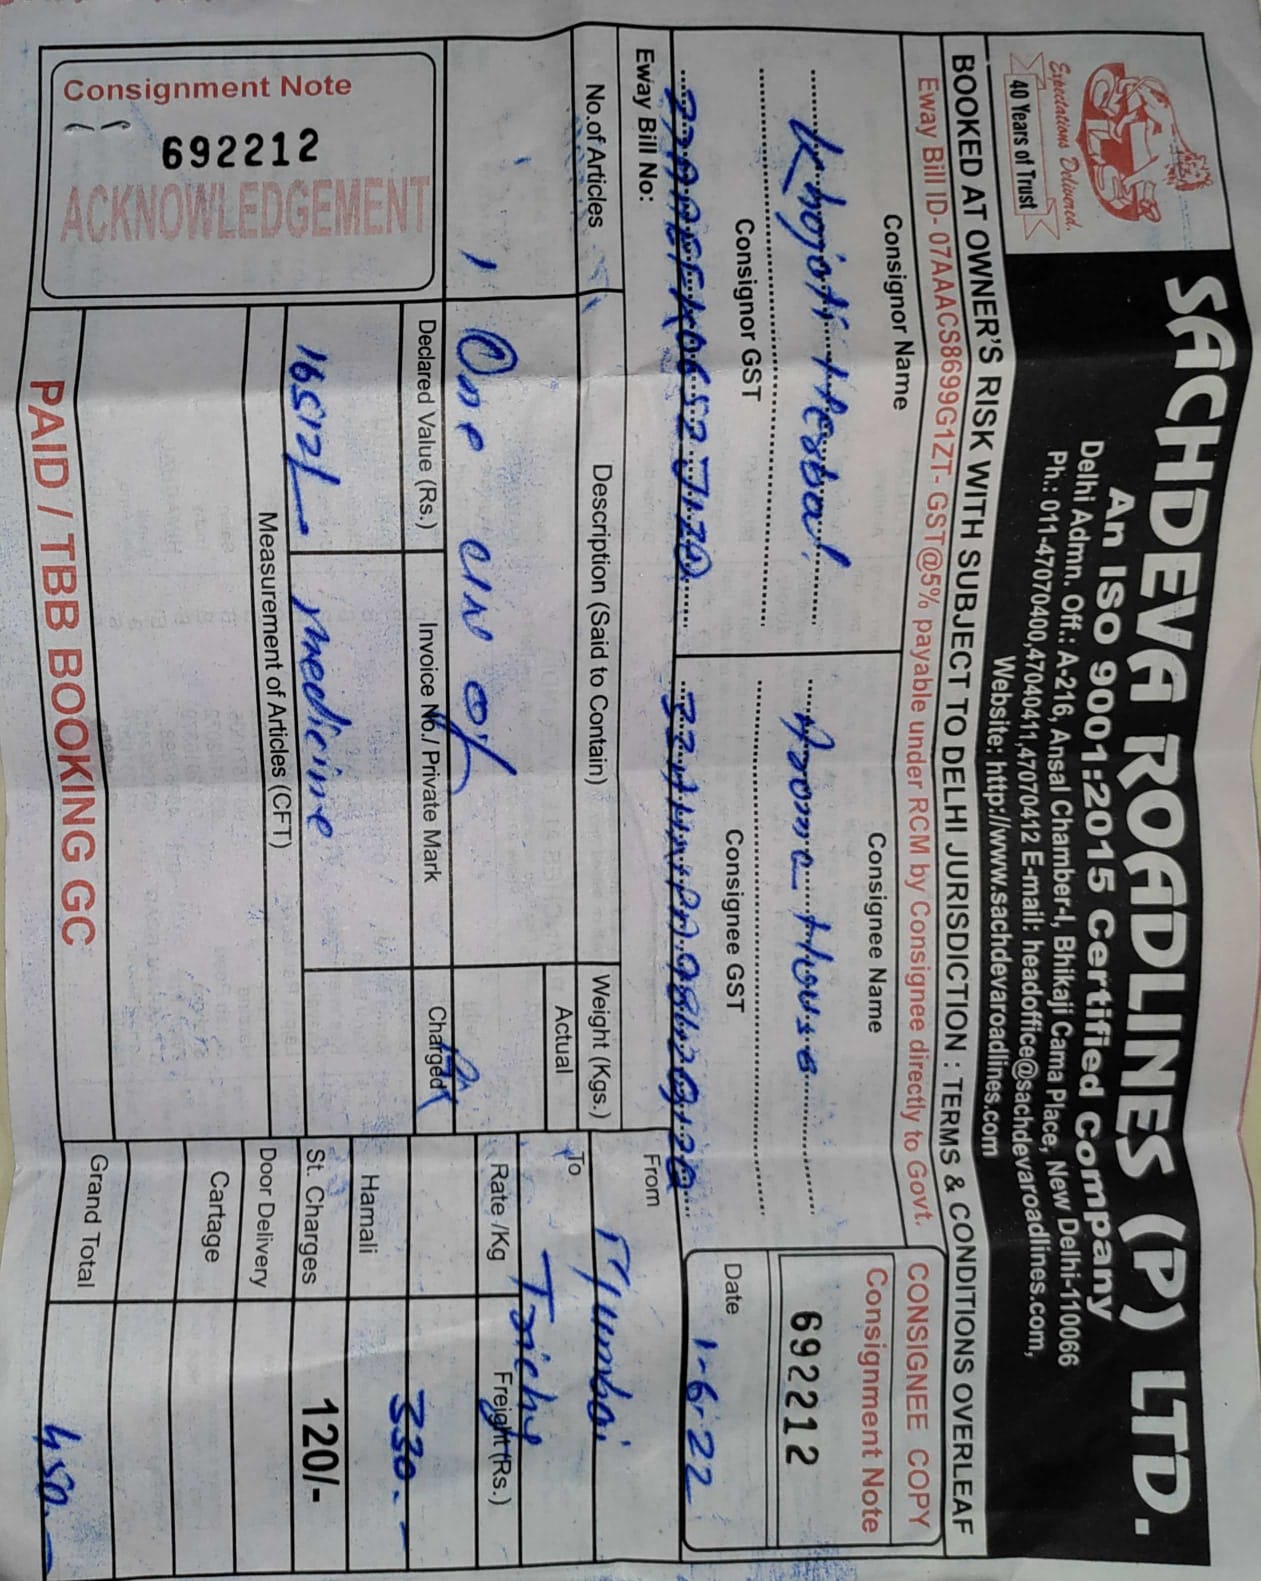 Expectations Delivered.
40 Years of Trust
SACHDEVA ROADLINES (P) LTD.
An ISO 9001:2015 Certified Company
Delhi Admn. Off.: A-216, Ansal Chamber-I, Bhikaji Cama Place, New Delhi-110066
Ph.: 011-47070400,47040411,47070412 E-mail: headoffice@sachdevaroadlines.com,
Website: http://www.sachdevaroadlines.com
BOOKED AT OWNER'S RISK WITH SUBJECT TO DELHI JURISDICTION : TERMS & CONDITIONS OVERLEAF
Eway Bill ID- 07AAACS8699G1ZT- GST@5% payable under RCM by Consignee directly to Govt.
CONSIGNEE COPY
Consignment Note
692212
Date 1-6-22
Consignor Name
Khojati Herbal
Consignor GST
Consignee Name
Aroma House
Consignee GST
Eway Bill No:
From Mumbai
To Trichy
No.of Articles
Description (Said to Contain)
Weight (Kgs.)
Actual
Rate /Kg
Freight (Rs.)
1
One of
Charged
330.-
Declared Value (Rs.)
Invoice No./ Private Mark
Hamali
16512/-
medicine
St. Charges
120/-
Measurement of Articles (CFT)
Door Delivery
Cartage
Grand Total
450.-
Consignment Note
692212
ACKNOWLEDGEMENT
PAID / TBB BOOKING GC